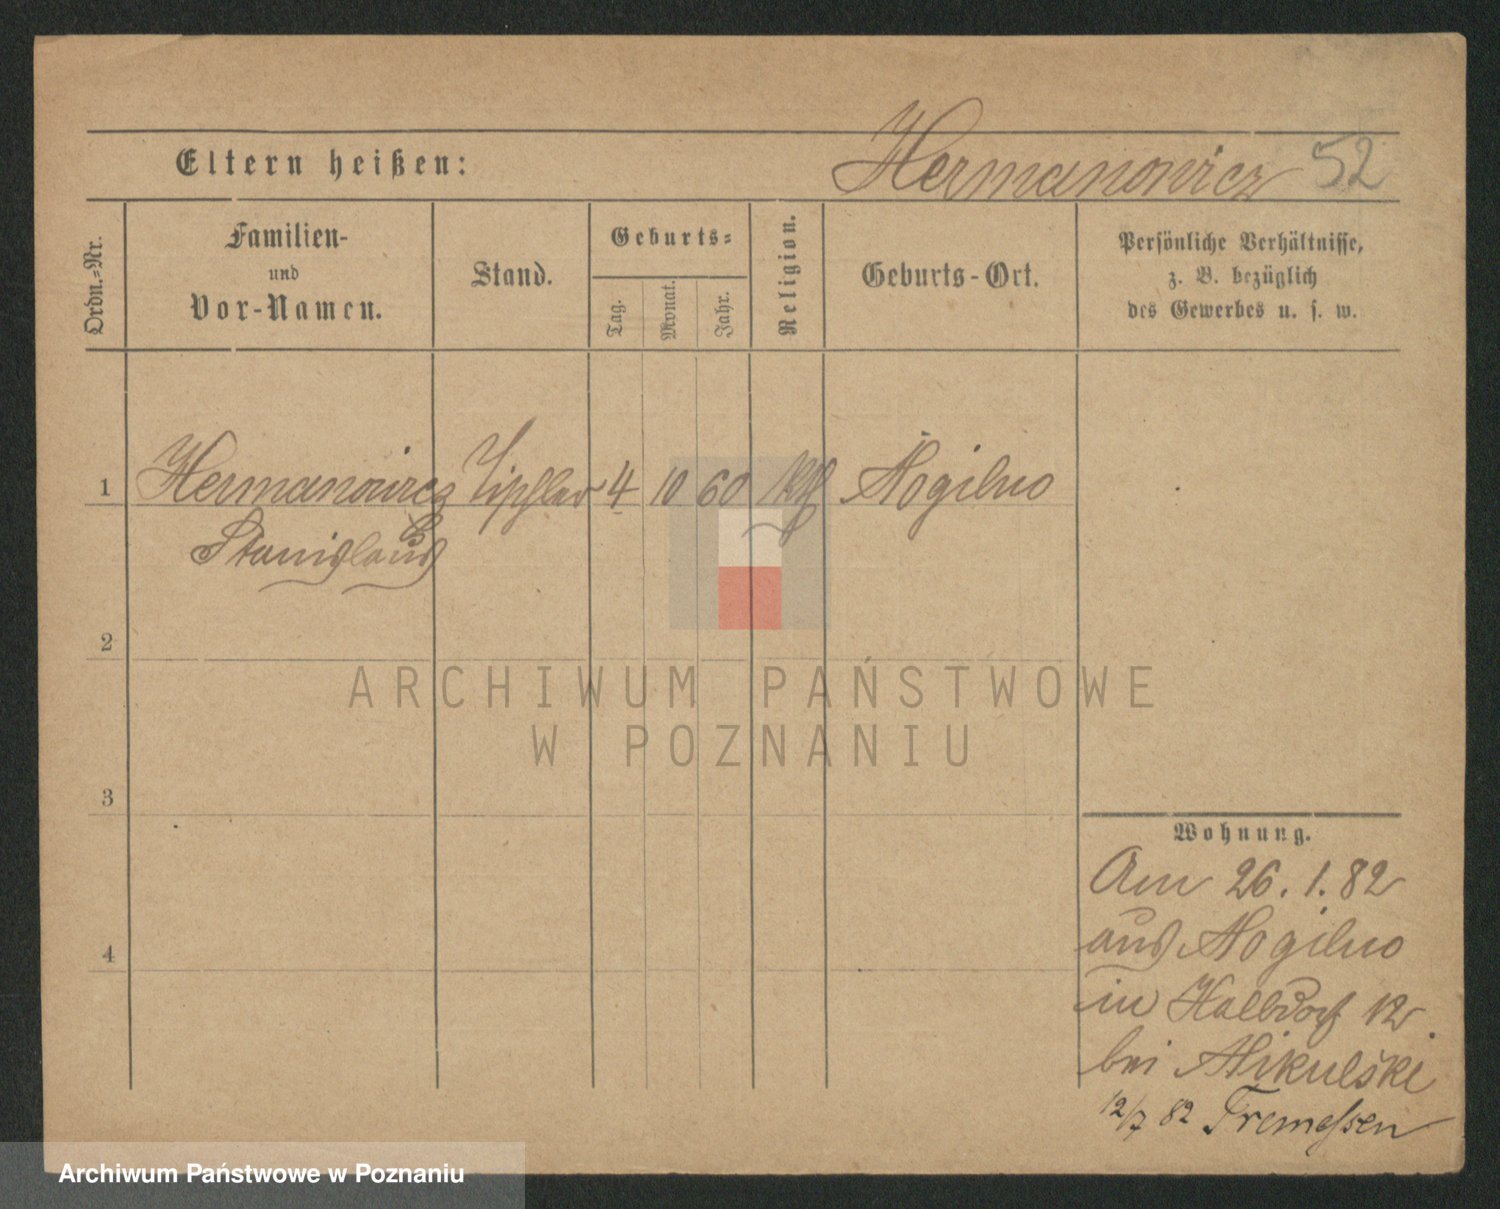 Eltern heißen:
Hermanowicz 52
Ordn.-Nr.
Familien-
und
Vor-Namen.
Stand.
Geburts-
Tag.
Monat.
Jahr.
Religion.
Geburts-Ort.
Persönliche Verhältnisse,
z. B. bezüglich
des Gewerbes u. s. w.
1 Hermanowicz Tischler 4 10 60 kth Mogilno
Stanislaus
2
ARCHIWUM PAŃSTWOWE
W POZNANIU
3
Wohnung.
Am 26.1.82
aus Mogilno
4
in Halbdorf 12
bei Mikulski
12/7 82 Tremessen
Archiwum Państwowe w Poznaniu